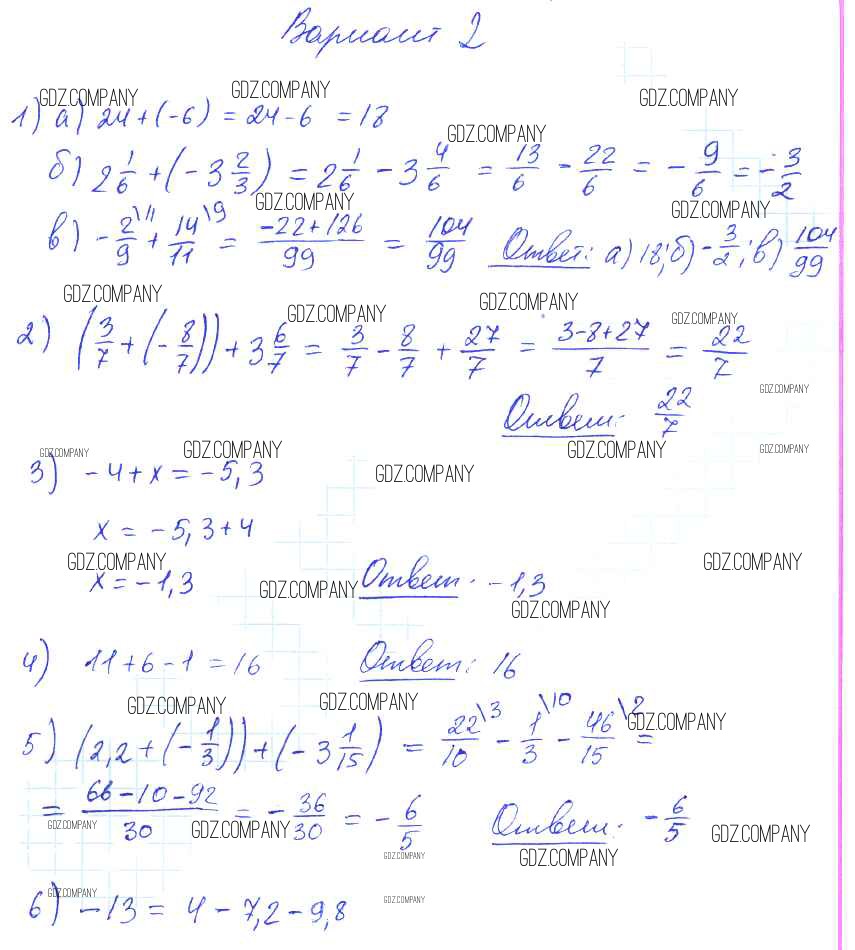 Вариант 2
GDZ.COMPANY GDZ.COMPANY GDZ.COMPANY
1) а) 24 + (-6) = 24 - 6 = 18
GDZ.COMPANY
б) 2 1/6 + (-3 2/3) = 2 1/6 - 3 4/6 = 13/6 - 22/6 = -9/6 = -3/2
GDZ.COMPANY GDZ.COMPANY
в) -2/9 \11 + 14/11 \9 = (-22+126)/99 = 104/99 Ответ: а) 18; б) -3/2; в) 104/99
GDZ.COMPANY GDZ.COMPANY GDZ.COMPANY GDZ.COMPANY
2) (3/7 + (-8/7)) + 3 6/7 = 3/7 - 8/7 + 27/7 = (3-8+27)/7 = 22/7
GDZ.COMPANY
Ответ: 22/7
GDZ.COMPANY GDZ.COMPANY GDZ.COMPANY GDZ.COMPANY
3) -4 + x = -5,3
GDZ.COMPANY
x = -5,3+4
GDZ.COMPANY GDZ.COMPANY
x = -1,3 Ответ: -1,3
GDZ.COMPANY GDZ.COMPANY
4) 11+6-1 = 16 Ответ: 16
GDZ.COMPANY GDZ.COMPANY GDZ.COMPANY
5) (2,2 + (-1/3)) + (-3 1/15) = 22/10 \3 - 1/3 \10 - 46/15 \2 =
= (66-10-92)/30 = -36/30 = -6/5 Ответ: -6/5
GDZ.COMPANY GDZ.COMPANY GDZ.COMPANY
GDZ.COMPANY GDZ.COMPANY
GDZ.COMPANY GDZ.COMPANY
6) -13 = 4 - 7,2 - 9,8